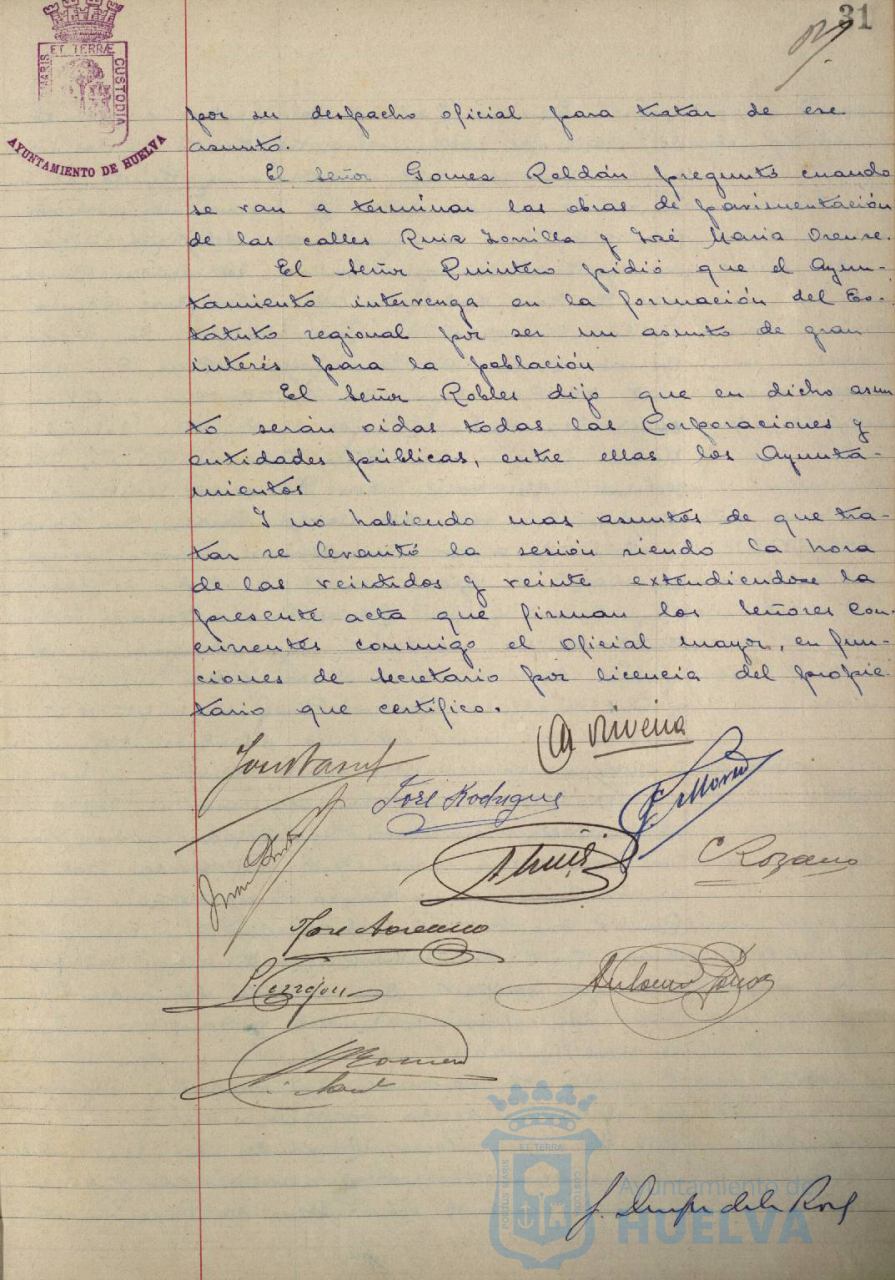 31
ET TERRÆ
CUSTODIA
AYUNTAMIENTO DE HUELVA
por su despacho oficial para tratar de ese
asunto.
El señor Gomez Roldán pregunto cuando
se van a terminar las obras de pavimentación
de las calles Ruiz Zorrilla y José Maria Orense.
El señor Quintero pidió que el Ayun-
tamiento intervenga en la formación del Es-
tatuto regional por ser un asunto de gran
interés para la población
El señor Robles dijo que en dicho asun
to serán oidas todas las Corporaciones y
entidades públicas, entre ellas los Ayunta-
mientos
Y no habiendo mas asuntos de que tra-
tar se levantó la sesión siendo la hora
de las veintidos y veinte extendiendose la
presente acta que firman los señores con-
currentes conmigo el oficial mayor, en fun-
ciones de secretario por licencia del propie-
tario que certifico.
José Rodrigue
C Rozano
Antonio
Ayuntamiento de
HUELVA
ET TERRAE